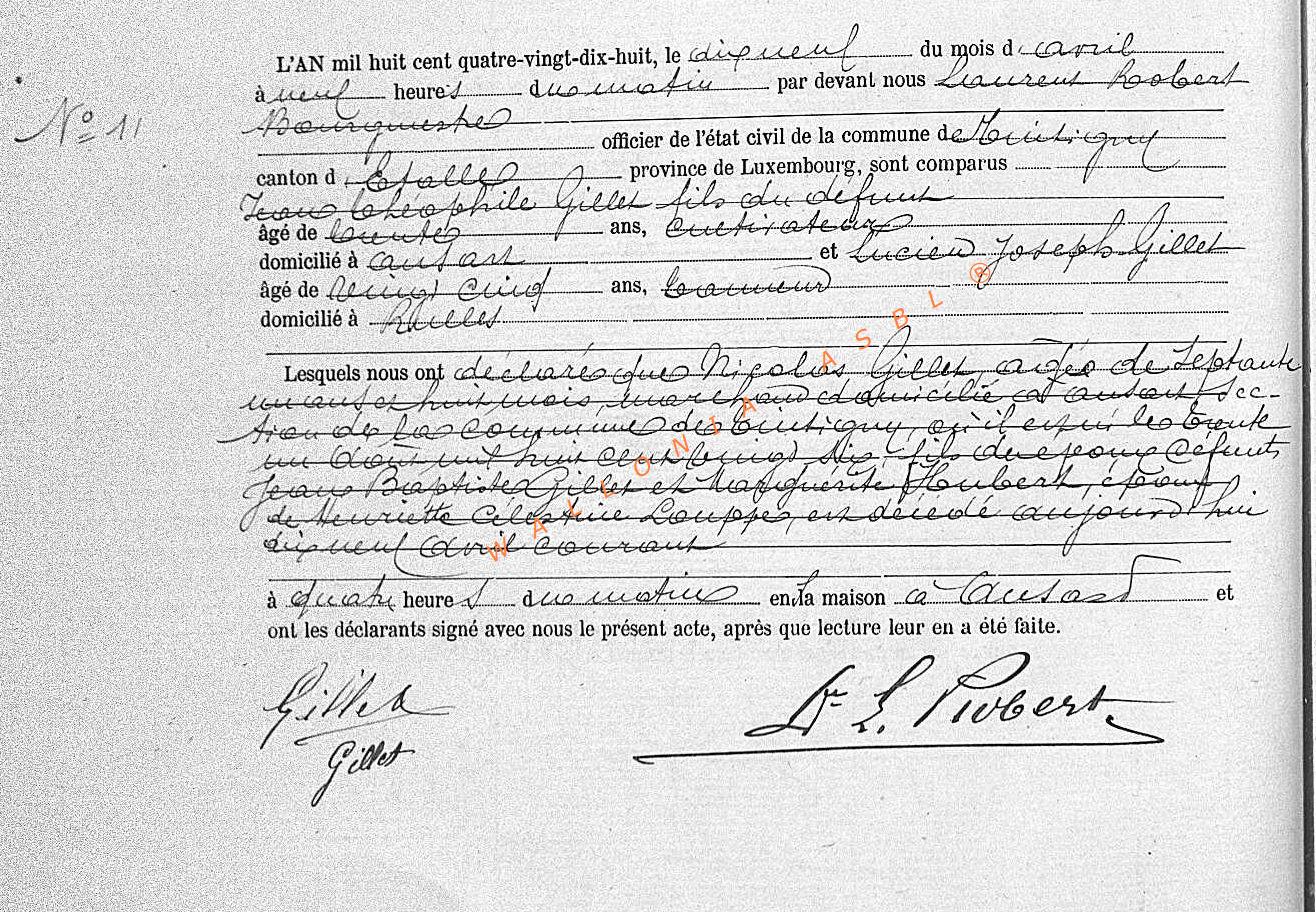 L'AN mil huit cent quatre-vingt-dix-huit, le dixneuf du mois d avril
N° 11
à neuf heures du matin par devant nous Laurent Robert
Bourgmestre
officier de l'état civil de la commune de Tintigny
canton d Etalle province de Luxembourg, sont comparus
Jean Théophile Gillet fils du défunt
âgé de trente ans, cultivateur
domicilié à ansart et Lucien Joseph Gillet
âgé de vingt cinq ans,
domicilié à Rulles
Lesquels nous ont déclarés que Nicolas Gillet, agée de Septante
un ans et huit mois, marchand domicilié à ansart, sec-
tion de la commune de Tintigny, où il est né le trente
un août mil huit cent vingt six, fils des époux défunts
Jean Baptiste Gillet et Marguérite Hubert, époux
de Henriette Célestine Louppe, est décédé aujourd'hui
dixneuf avril courant
à quatre heures du matin en sa maison à Ansart et
ont les déclarants signé avec nous le présent acte, après que lecture leur en a été faite.
Gillet
Gillet
Dr L. Robert
WALLONIA ASBL ®